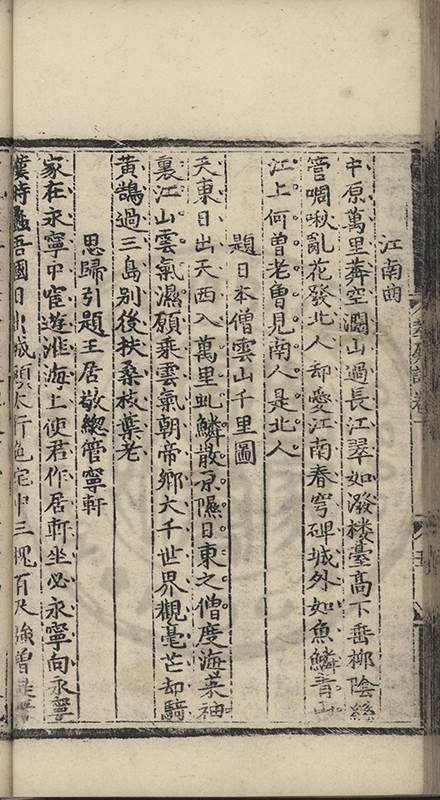 江南曲
中原萬里莽空濶山過長江翠如潑楼臺高下垂柳陰絲
管啁啾亂花發北人却愛江南春穹碑城外如魚鱗青山
江上何曾老曽見南人是北人
題日本僧雲山千里圖
天東日出天西入萬里虬鱗散原隰日東之僧度海來袖
裏江山雲氣濕願乘雲氣朝帝鄉大千世界觀毫芒却騎
黄鵠過三島别後扶桑枝葉老
思歸引題王居敬緫管寧軒
家在永寧中宦遊淮海上使君作居軒坐必永寧向永寧
漢時蠡吾國日出城頭太行色宅中三槐百尺強曽